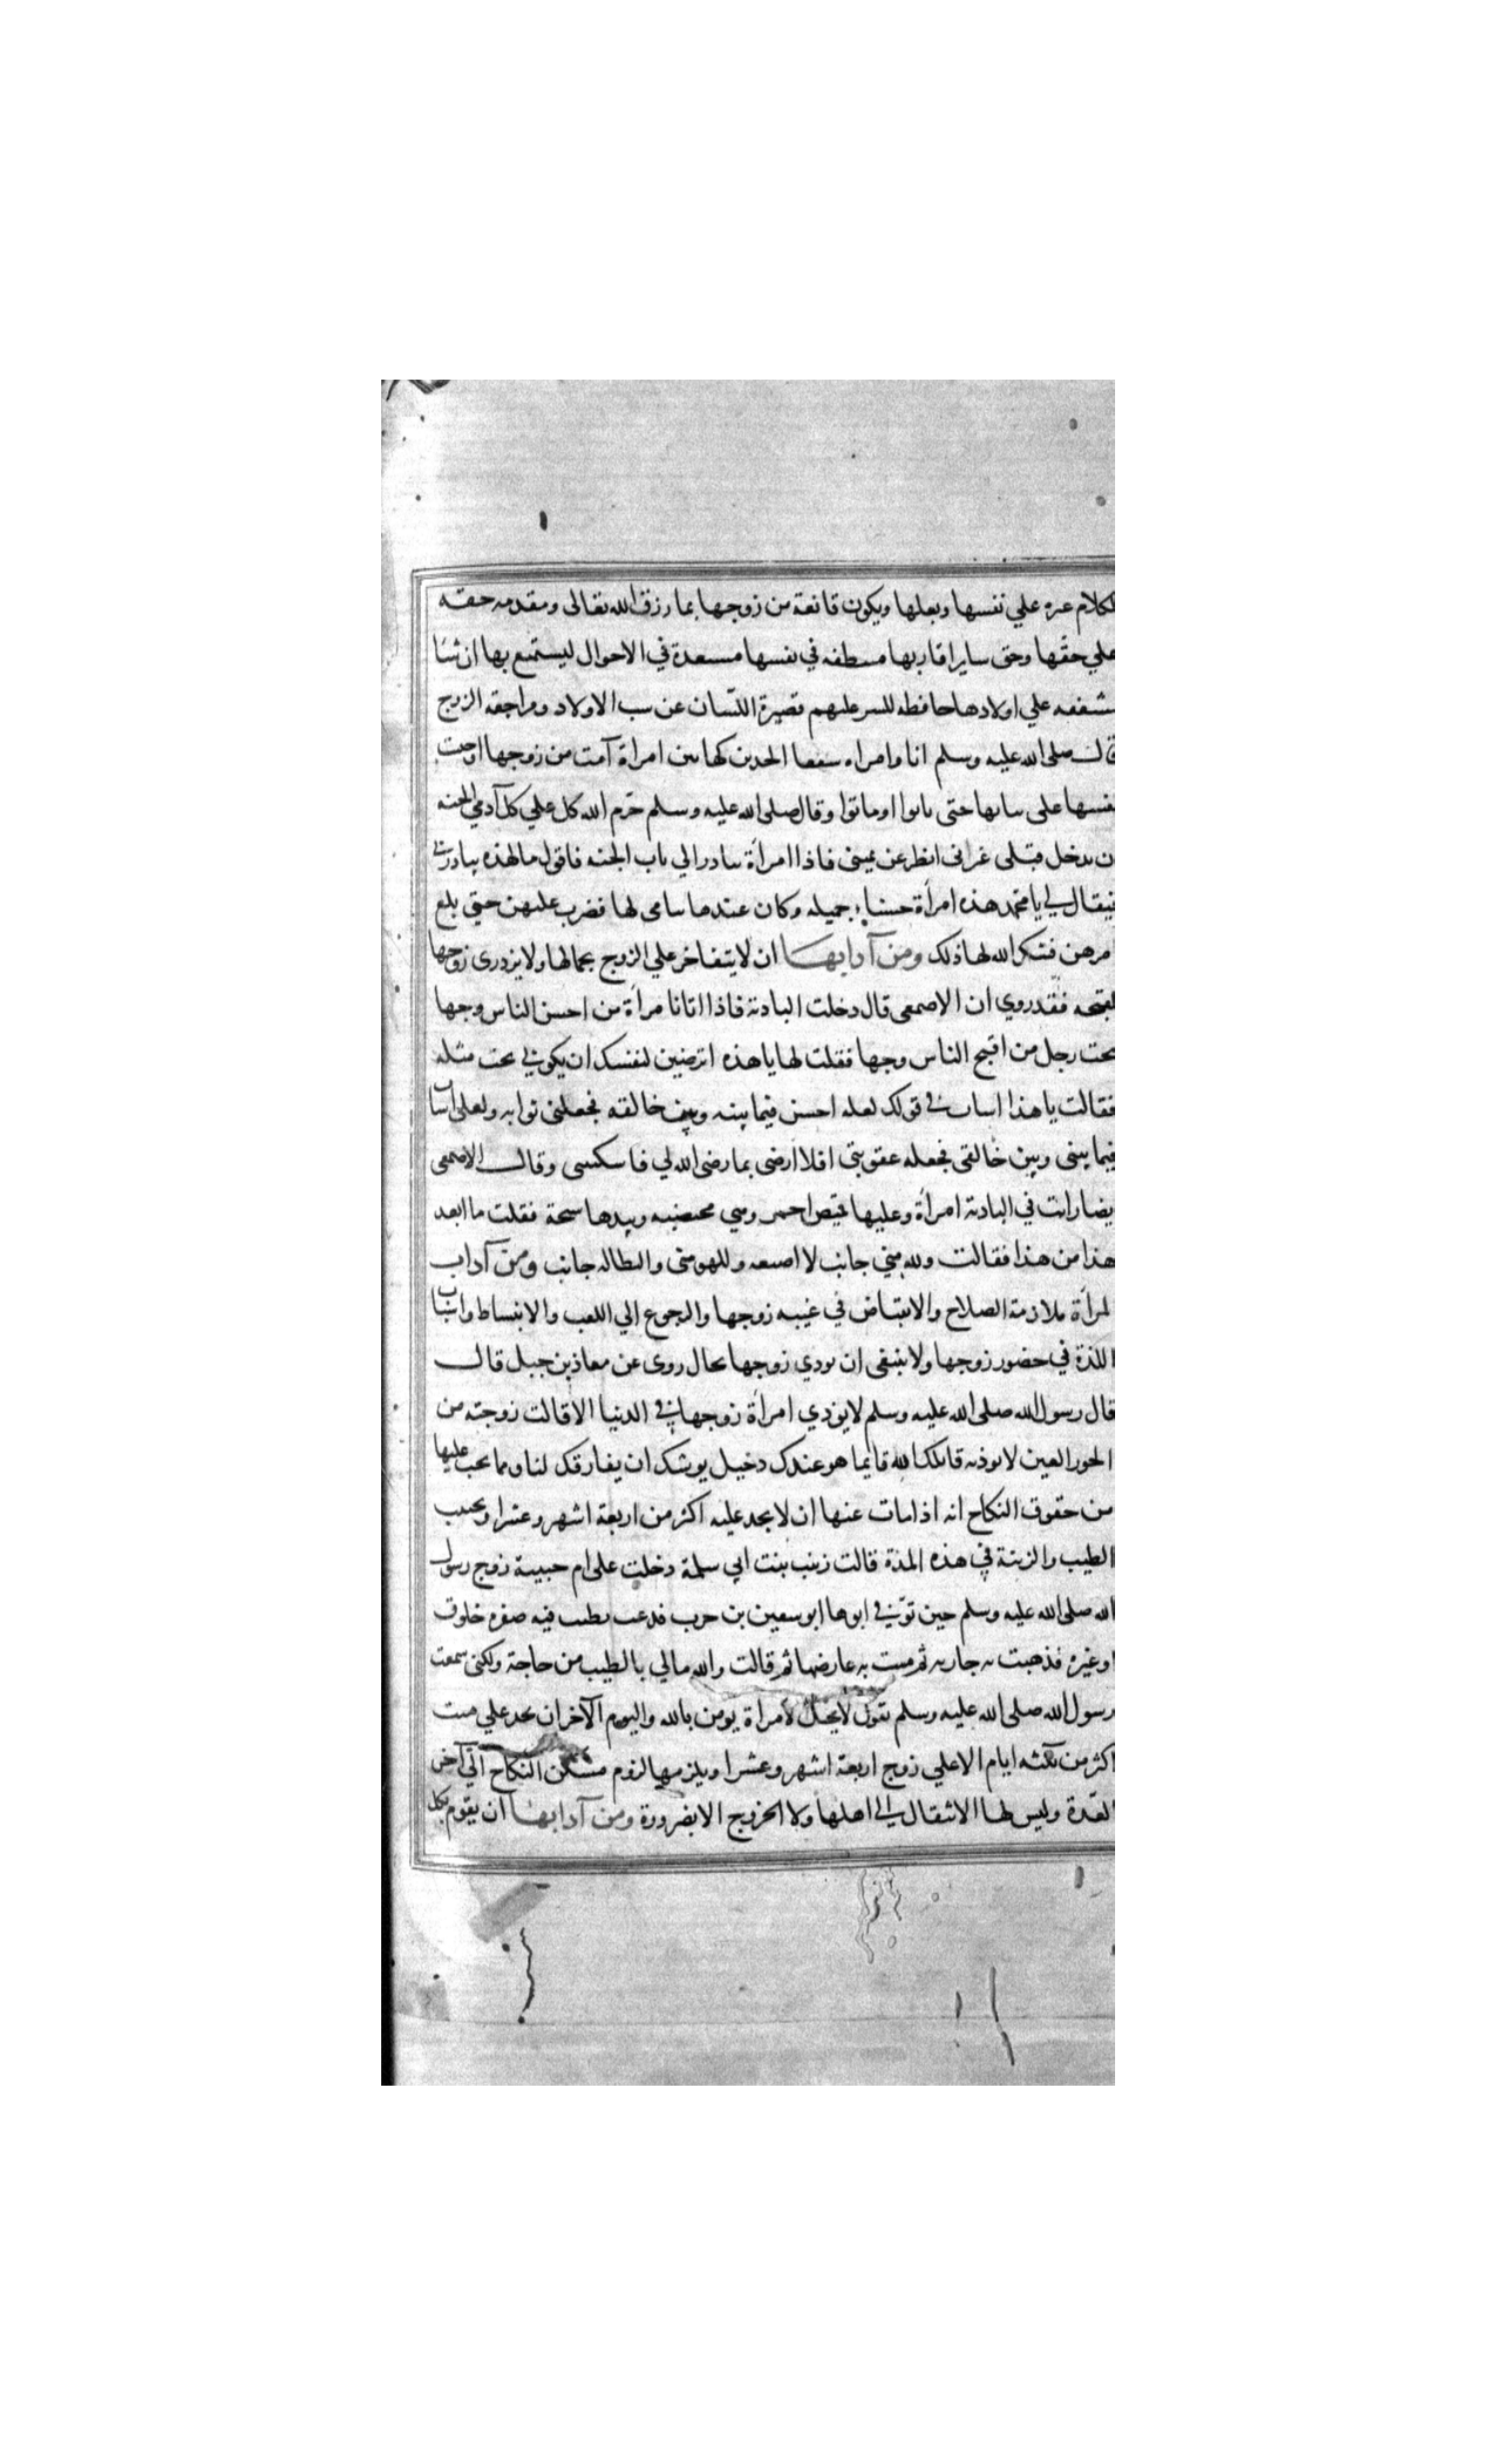 لكلام عره علي نفسها وبعلها ويكون قانعة من زوجها بما رزق الله تعالى ومقدمه حقه
علي حقها وحق ساير اقاربها مسطفه في نفسها مسعدة في الاحوال ليستمتع بها ان شا
مشفقه علي اولادها حافظه للسر عليهم قصيرة اللسان عن سب الاولاد ومراجعة الزوج
قال صلى الله عليه وسلم انا وامراه سفعا الخدين كهاتين امراة آمت من زوجها احبت
نفسها على بناتها حتى بانوا او ماتوا وقال صلى الله عليه وسلم حرم الله كل علي كل آدمي الجنه
ن يدخل قبلي غير اني انظر عن يميني فاذا امراة تبادر الي باب الجنه فاقول ما لهذه تبادرني
فيقال لي يا محمد هذه امراة حسنا جميله وكان عندها يتامى لها فصبرت عليهن حتي بلغ
امرهن فشكر الله لها ذلك ومن آدابها ان لا يتفاخر علي الزوج بجمالها ولا يزدرى زوجها
لقبحه فقد روي ان الاصمعي قال دخلت البادية فاذا اتانا مراة من احسن الناس وجها
تحت رجل من اقبح الناس وجها فقلت لها يا هذه اترضين لنفسك ان يكوني تحت مثله
فقالت يا هذا اسات في قولك لعله احسن فيما بينه وبين خالقه فجعلني ثوابه ولعلى اسات
فيما بيني وبين خالقي فجعله عقوبتي افلا ارضى بما رضى الله لي فاسكتني وقال الاصمعى
يضا رايت في البادية امراة وعليها قميص احمر وهي مختضبه وبيدها سبحة فقلت ما ابعد
هذا من هذا فقالت ولله مني جانب لا اضيعه وللهو مني والبطالة جانب ومن آداب
لمراة ملازمة الصلاح والانقباض في غيبه زوجها والرجوع الي اللعب والانبساط واسباب
اللذة في حضور زوجها ولا ينبغى ان يودي زوجها بحال روى عن معاذ بن جبل قال
قال رسول الله صلى الله عليه وسلم لا يوذي امراة زوجها في الدنيا الا قالت زوجته من
الحور العين لا توذيه قاتلك الله فانما هو عندك دخيل يوشك ان يفارقك لنا ومما يجب عليها
من حقوق النكاح انه اذا مات عنها ان لا يحد عليه اكثر من اربعة اشهر وعشرا ويجتنب
الطيب والزينة في هذه المدة قالت زينب بنت ابي سلمة دخلت على ام حبيبة زوج رسول
الله صلى الله عليه وسلم حين توفي ابوها ابو سفين بن حرب فدعت بطيب فيه صفره خلوق
او غيره فذهبت به جاريه ثم مست به عارضها ثم قالت والله مالي بالطيب من حاجة ولكني سمعت
رسول الله صلى الله عليه وسلم يقول لا يحل لامراة يومن بالله واليوم الآخر ان يحد علي ميت
اكثر من ثلثه ايام الا علي زوج اربعة اشهر وعشرا ويلزمها لزوم مسكن النكاح الي آخر
العدة وليس لها الانتقال الي اهلها ولا الخروج الا بضرورة ومن آدابها ان يقوم بكل